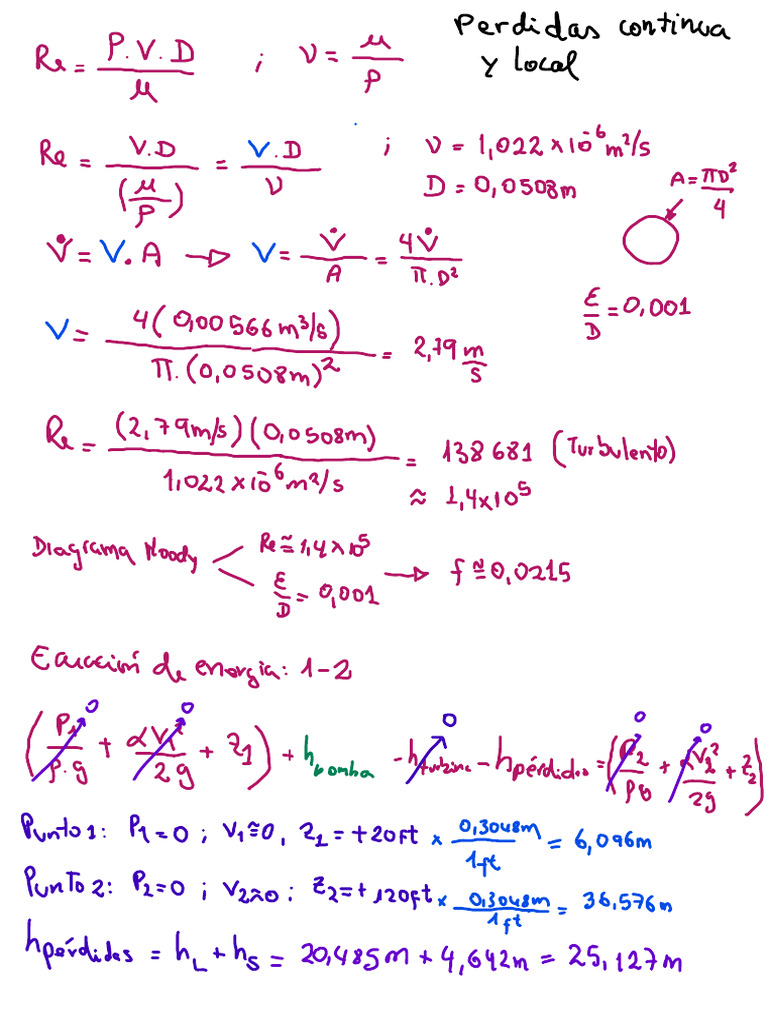 Perdidas continua
y local
Re = P.V.D / μ ; ν = μ / ρ
Re = V.D / (μ/ρ) = V.D / ν ; ν = 1,022×10⁻⁶ m²/s
D = 0,0508m
A = πD² / 4
V̇ = V . A → V = V̇ / A = 4V̇ / π.D²
ε/D = 0,001
V = 4(0,00566 m³/s) / π.(0,0508m)² = 2,79 m/s
Re = (2,79m/s)(0,0508m) / 1,022×10⁻⁶ m²/s = 138681 (Turbulento)
≈ 1,4×10⁵
Diagrama Moody < Re ≅ 1,4×10⁵ → f ≅ 0,0215
ε/D = 0,001
Ecuación de energia: 1-2
(P₁/ρ.g + αV₁²/2g + Z₁) + h bomba - h turbina - h pérdidas = (P₂/ρg + αV₂²/2g + Z₂)
0 0 0 0 0
Punto 1: P₁=0 ; V₁≅0, Z₁ = +20ft × 0,3048m / 1ft = 6,096m
Punto 2: P₂=0 ; V₂≈0 ; Z₂=+120ft × 0,3048m / 1ft = 36,576m
h pérdidas = h_L + h_S = 20,485m + 4,642m = 25,127m